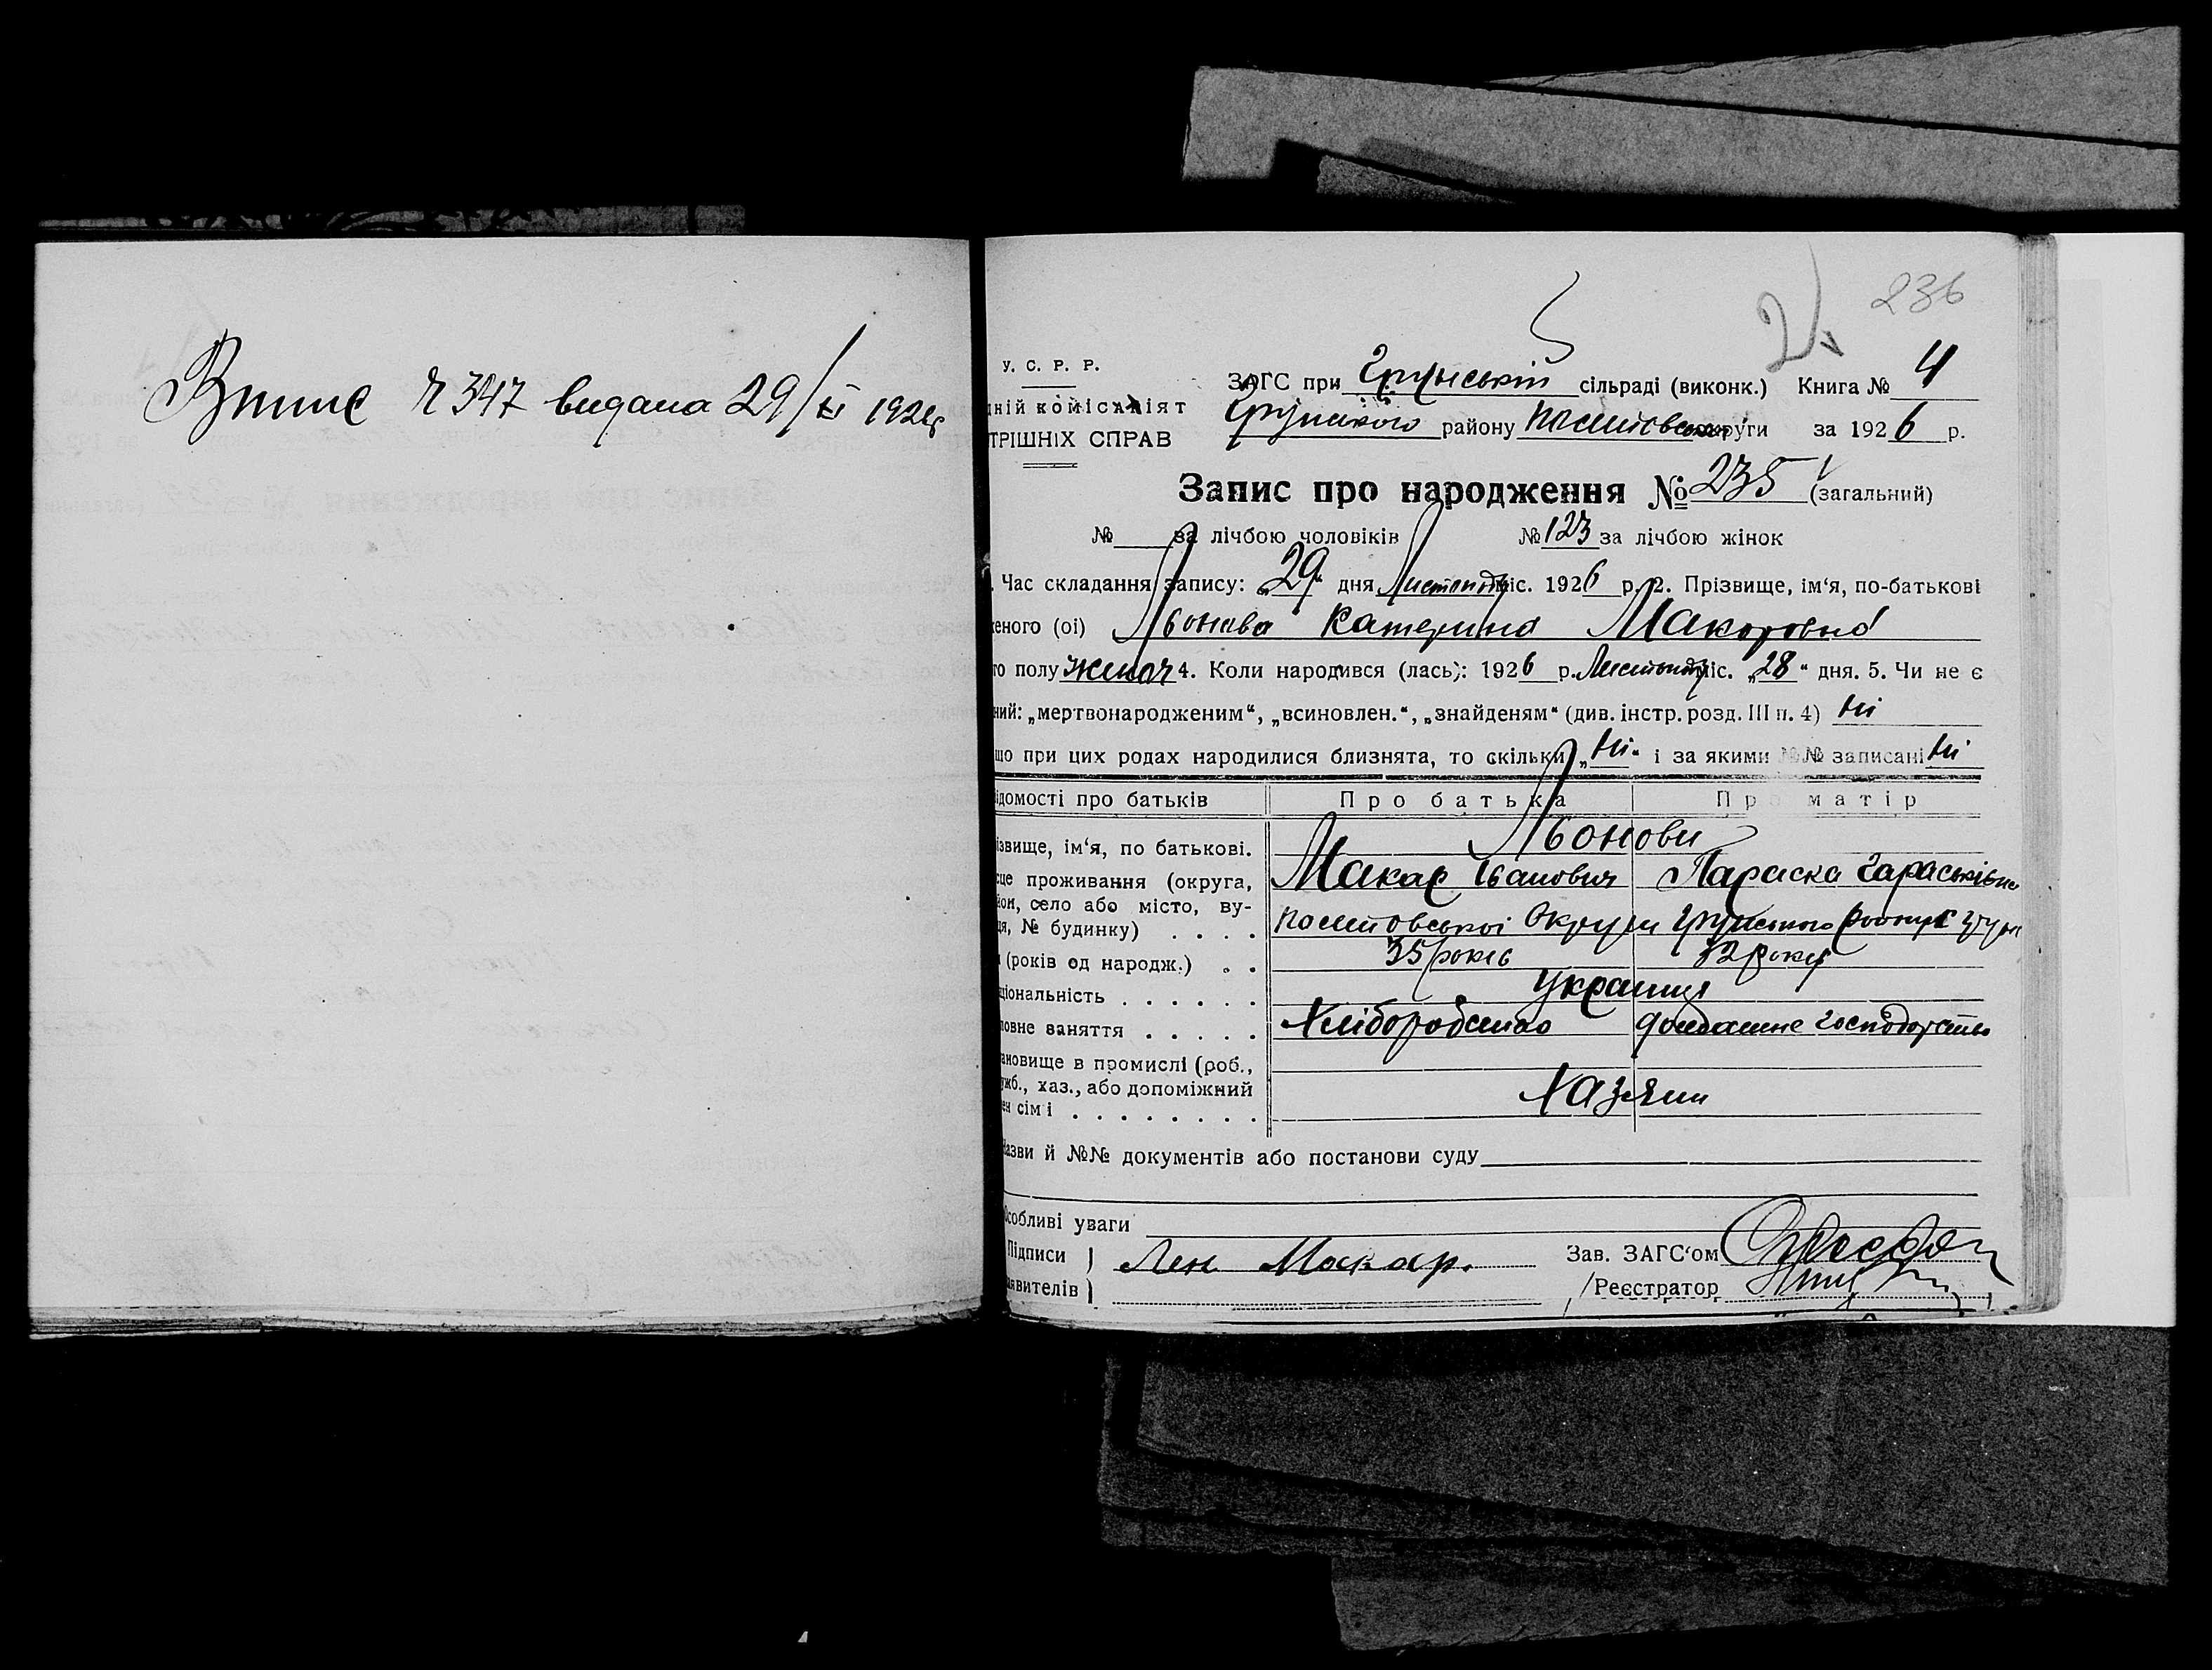 Випис № 347 видана 29/XI 1926
236
У. С. Р. Р.
ЗАГС при Грунській сільраді (виконк.) Книга № 4
ній комісаріят
Грунського району округи за 1926 р.
ТРІШНІХ СПРАВ
Запис про народження № 235 (загальний)
№ за лічбою чоловіків № 123 за лічбою жінок
Час складання запису: „29“ дня Листопад міс. 1926 р. 2. Прізвище, ім‘я, по-батькові
еного (ої) Катерина Макаровна
го полу 4. Коли народився (лась): 1926 р. Листопад міс. „28“ дня. 5. Чи не є
ний: „мертвонародженим“, „всиновлен.“, „знайденям“ (див. інстр. розд. III п. 4) Ні
що при цих родах народилися близнята, то скільки „Ні“ і за якими №№ записані Ні
ідомості про батьків Про батька Про матір
ізвище, ім‘я, по батькові.
Макар Іванович Параска Гараськівна
сце проживання (округа,
йон, село або місто, ву-
ця, № будинку) . . . . Округи Грунського
(років од народж.) . . 35 років 32 роки
ціональність . . . . . . Українці
ловне заняття . . . . . Хліборобство домашнє господарство
ановище в промислі (роб.,
ужб., хаз., або допоміжний
ен сімї . . . . . . . . Хазяїн
азви й №№ документів або постанови суду
Особливі уваги
Підписи
Макар. Зав. ЗАГС‘ом
явителів
Реєстратор